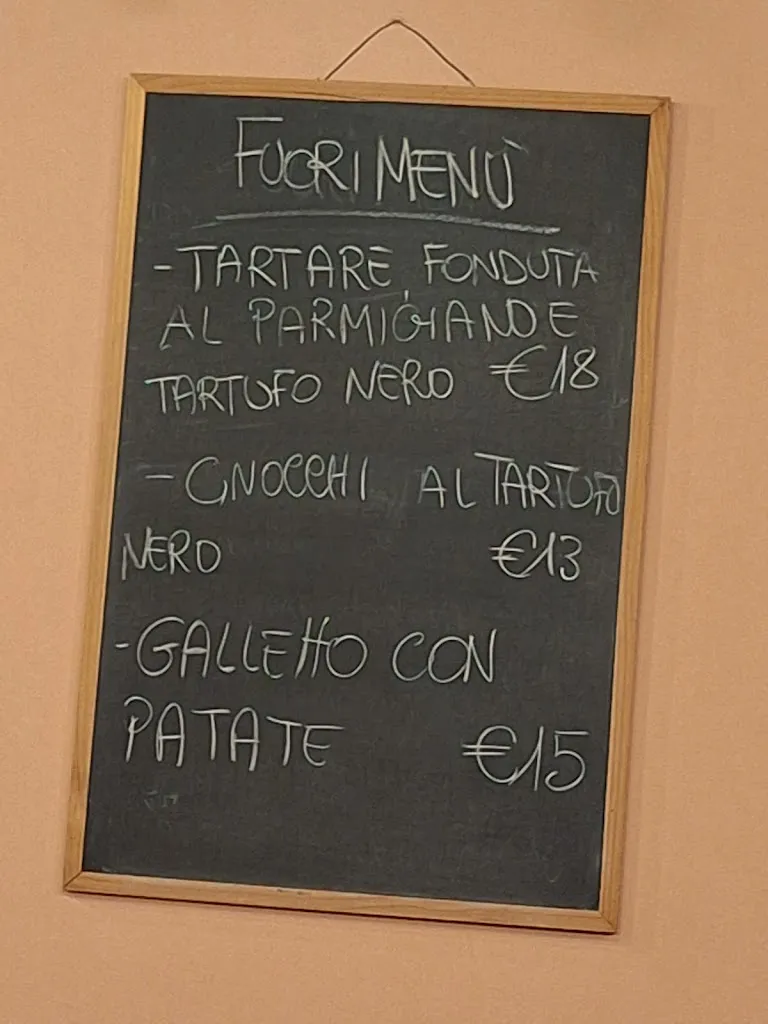 FUORI MENÙ
- TARTARE, FONDUTA
AL PARMIGIANO E
TARTUFO NERO €18
- GNOCCHI AL TARTUFO
NERO €13
- GALLETTO CON
PATATE €15